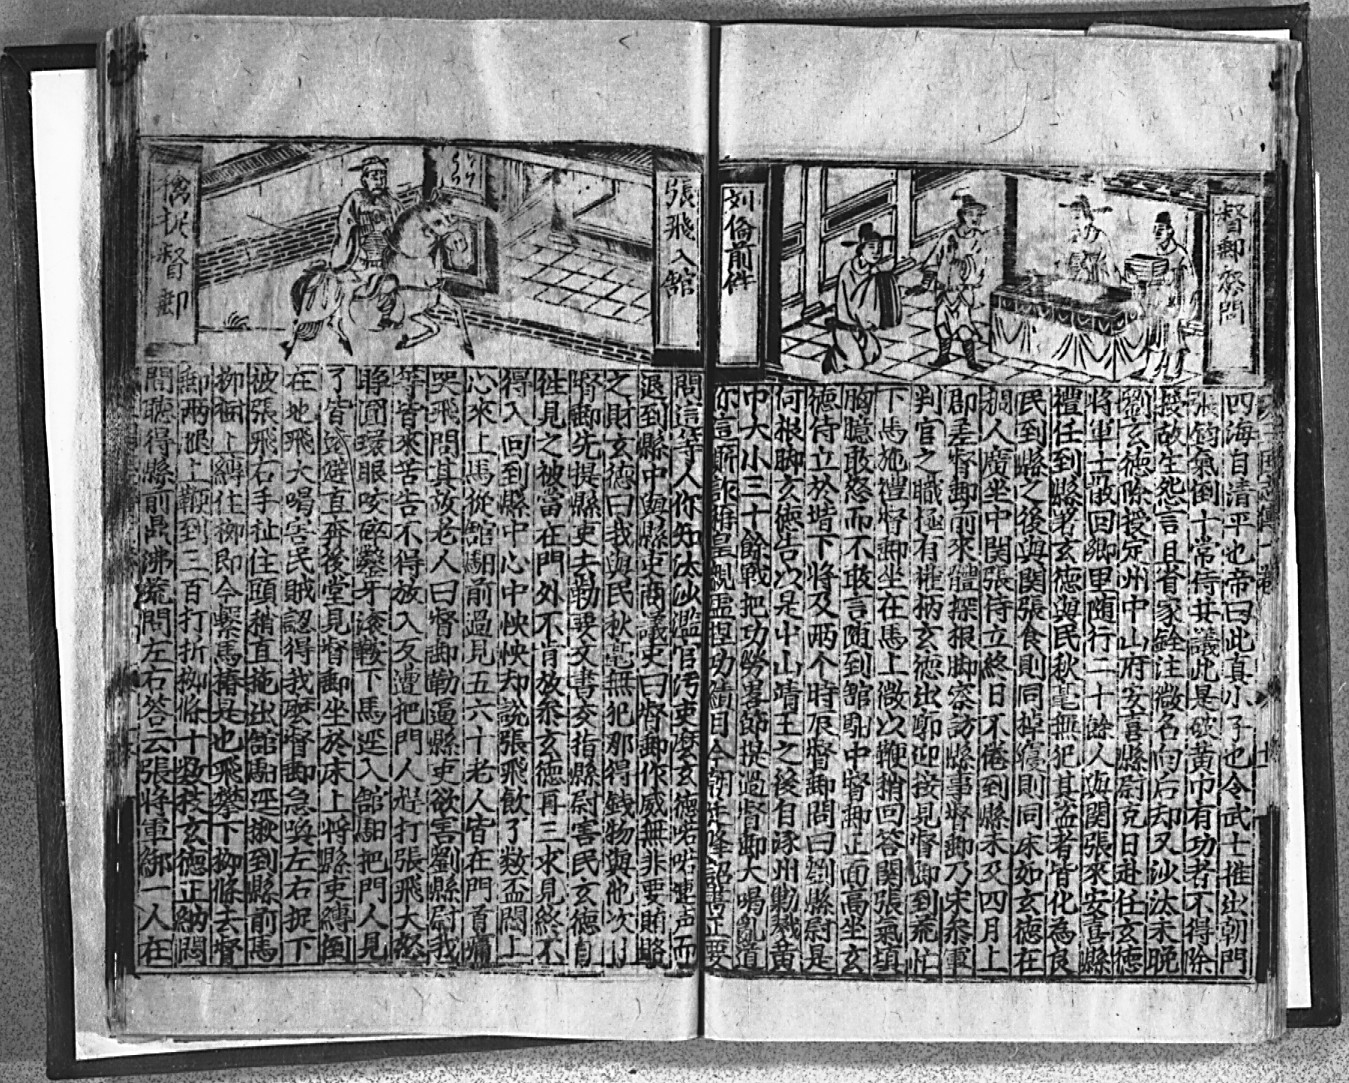 督郵發問
刘俻前件
四海自清平也帝曰此真小子也令武士推出朝門
張鈞氣倒十常侍共議此是破黄巾有功者不得除
授故生怨言且省家銓注微名向后却又沙汰未晚
劉玄德除授定州中山府安喜縣尉克日赴任玄德
將軍士散回鄉里随行二十餘人與関張來安喜縣
禮任到縣署玄德與民秋毫無犯其盗者皆化為良
民到縣之後與関張食則同掉寢則同床如玄德在
稠人廣坐中関張侍立終日不倦到縣未及四月上
郡差督郵前來體探根脚容訪縣事督郵乃宋叅軍
判官之職極有權柄玄德出郭迎接見督郵到乘忙
下馬施禮督郵坐在馬上微以鞭稍回答関張氣填
胸臆敢怒而不敢言随到舘馹中督郵正面高坐玄
德侍立於堦下將及兩个時辰督郵問曰劉縣尉是
何根脚玄德告以是中山靖王之後自涿州勦戮黄
巾大小三十餘戰把功勞畧節提過督郵大喝亂道
你這厮詐稱皇親虚揑功績目今朝廷降詔書正要
張飛入舘
問這等人你知汰沙濫官污吏麽玄德喏喏連声而
退到縣中與縣吏商議吏曰督郵作威無非要賄賂
之財玄德曰我與民秋毫無犯那得錢物與他次日
督郵先提縣吏去勒要文書交指縣尉害民玄德自
徃見之被當在門外不肯放叅玄德再三求見終不
得入回到縣中心中怏怏却說張飛飲了数盃悶上
心來上馬從舘馹前過見五六十老人皆在門首痛
哭飛問其故老人曰督郵勒逼縣吏欲害劉縣尉我
等皆來苦告不得放入反遭把門人趕打張飛大怒
睁圓環眼咬碎鑿牙滚鞍下馬迳入舘馹把門人見
了皆逺避直奔後堂見督郵坐於床上將縣吏縛倒
在地飛大喝害民賊認得我麽督郵急喚左右捉下
被張飛右手扯住頭稍直拖出舘馹迳揪到縣前馬
柳樁上縛住柳即令繫馬樁是也飛攀下柳條去督
郵兩腿上鞭到三百打折柳條十数枝玄德正納悶
間聽得縣前鼎沸荒問左右答云張將軍綁一人在